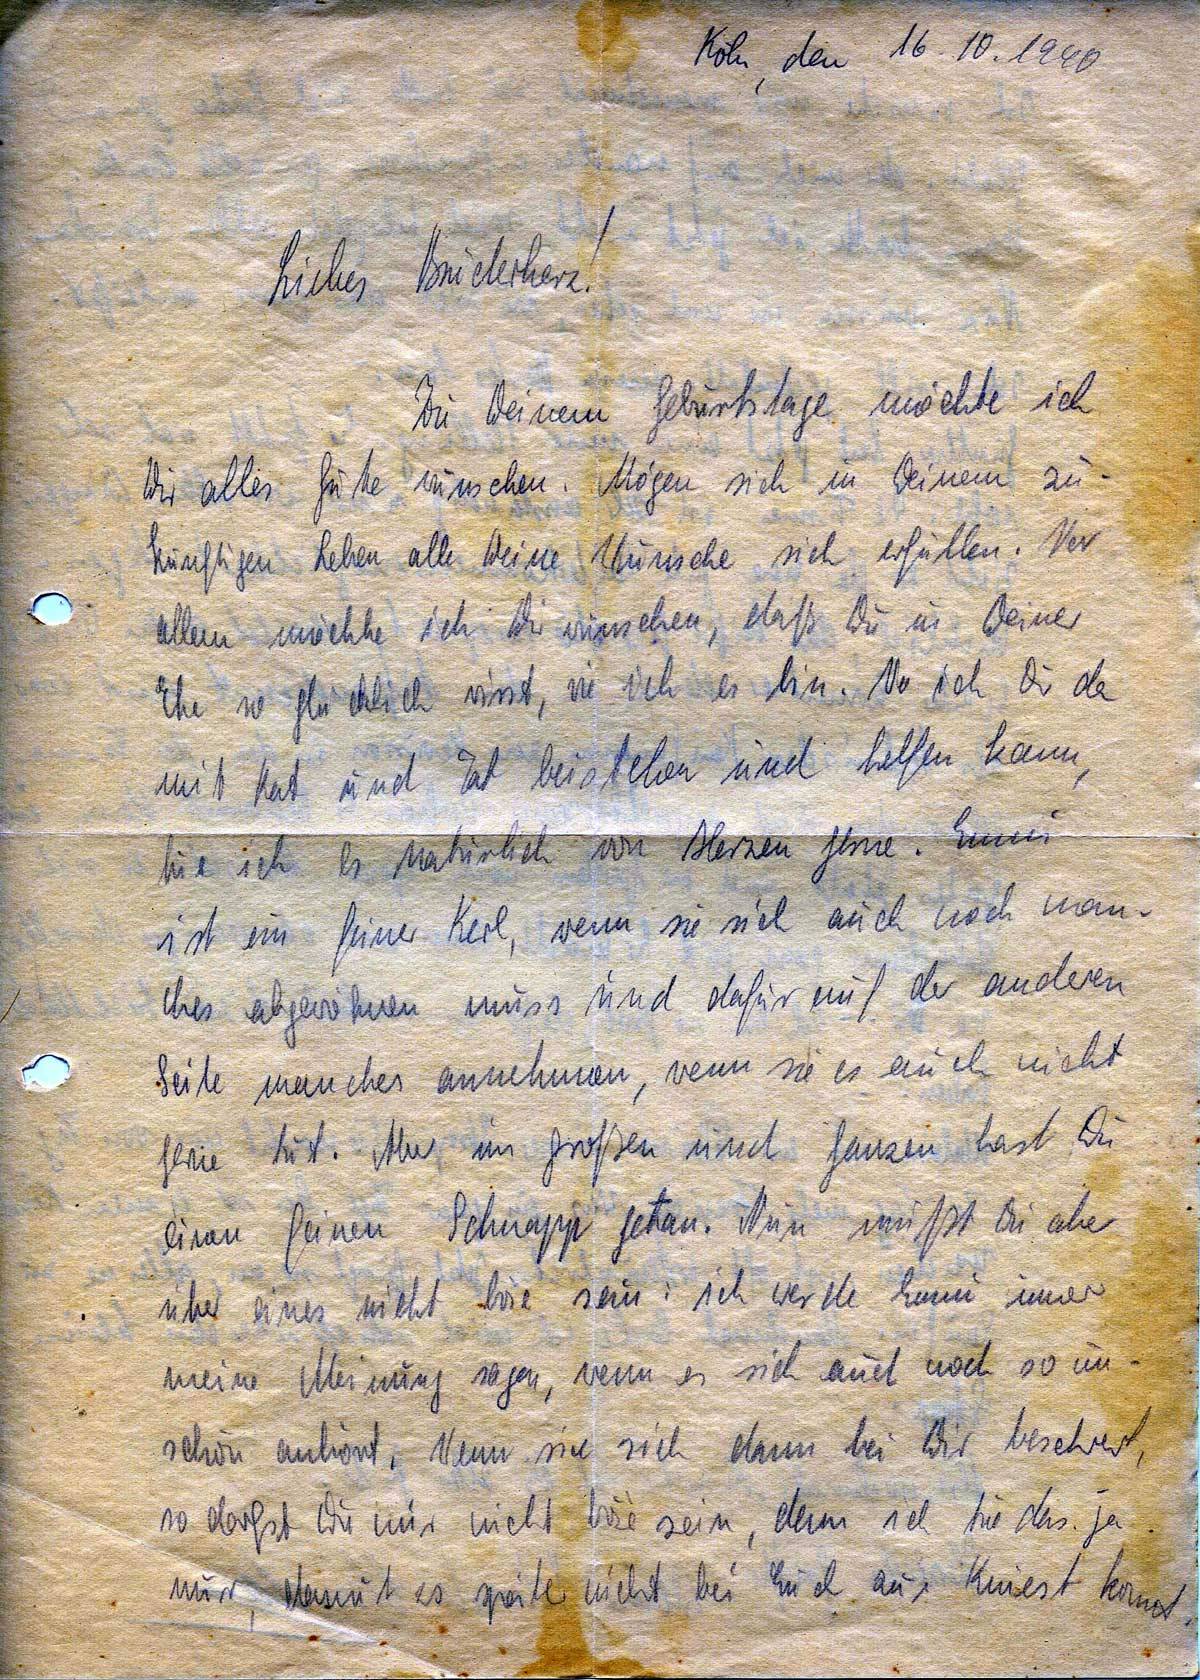 Köln, den 16.10.1940
Liebes Bruderherz!
Zu Deinem Geburtstage möchte ich
Dir alles Gute wünschen. Mögen sich in Deinem zu-
künftigen Leben alle Deine Wünsche sich erfüllen. Vor
allem möchte ich Dir wünschen, daß Du in Deiner
Ehe so glücklich wirst, wie ich es bin. Wo ich Dir da
mit Rat und Tat beistehen und helfen kann,
tue ich es natürlich von Herzen gerne. Emmi
ist ein feiner Kerl, wenn sie sich auch noch man-
ches abgewöhnen muss und dafür auf der anderen
Seite manches annehmen, wenn sie es auch nicht
gerne tut. Aber im großen und ganzen hast Du
einen feinen Schnapp getan. Nun mußt Du aber
über eines nicht böse sein: ich werde Emmi immer
meine Meinung sagen, wenn es sich auch noch so un-
schön anhört. Wenn sie sich dann bei Dir beschwert,
so darfst Du mir nicht böse sein, denn ich tue das ja
nur, damit es später nicht bei Euch zu kommt.